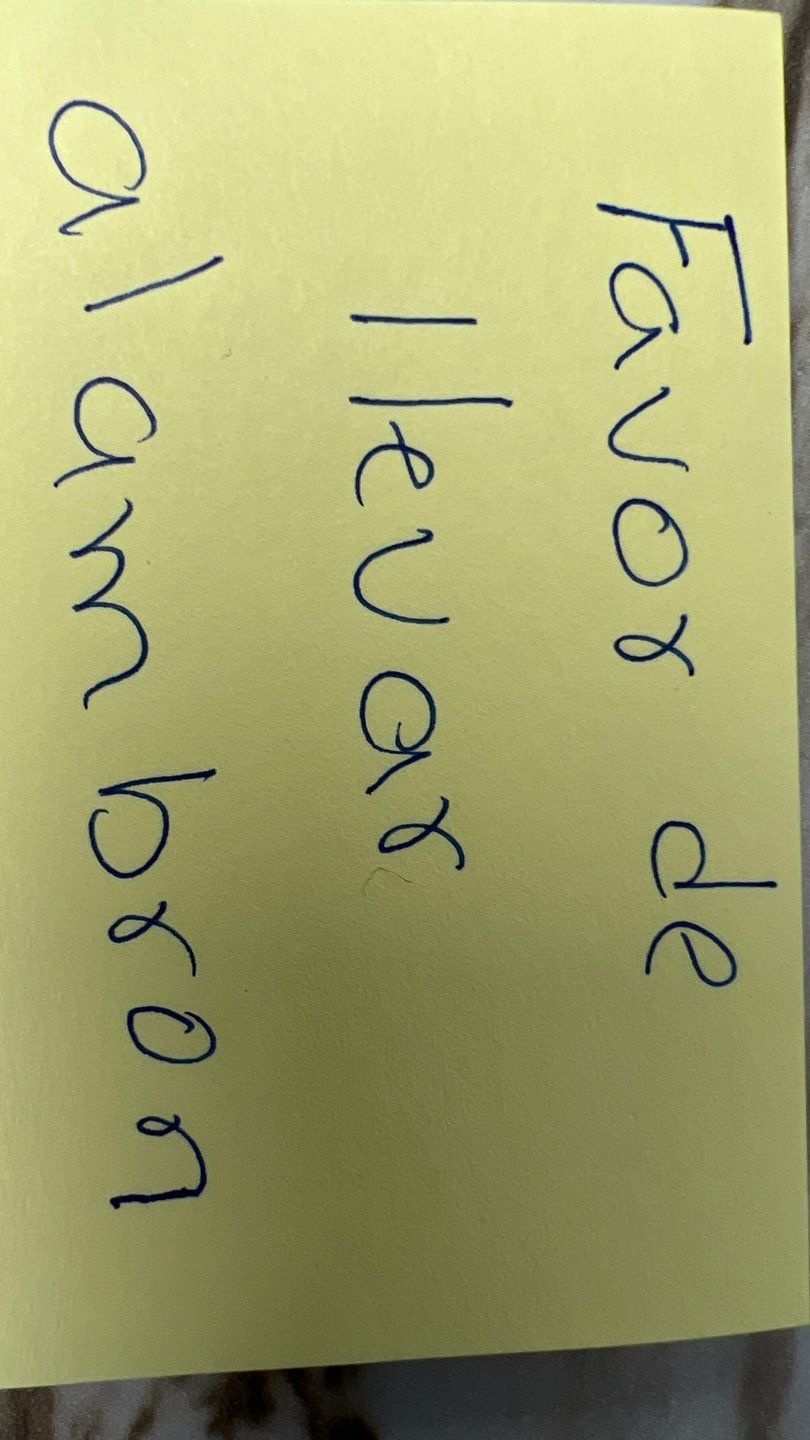 Favor de
llevar
alambron